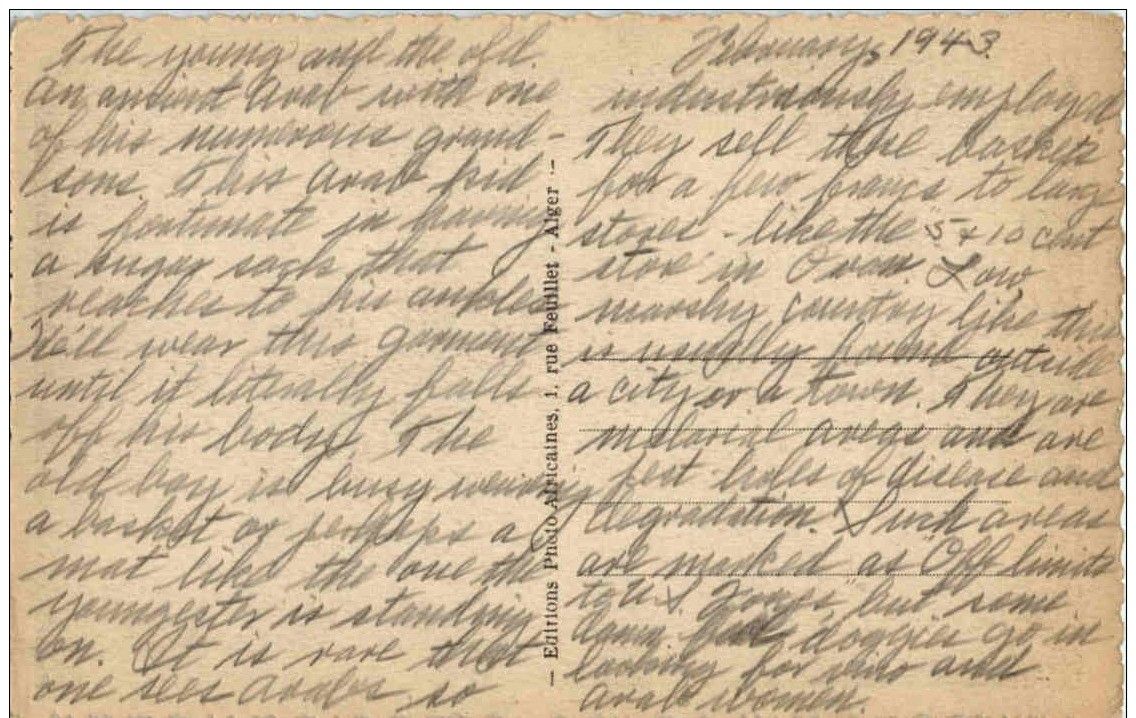 The young and the old.
An ancient Arab with one
of his numerous grand-
sons. This Arab kid
is fortunat in having
a sugar sack that
reaches to his ankles
He'll wear this garment
until it literally falls
off his body. The
old boy is busy weaving
a basket or perhaps a
mat like the one the
youngester is standing
on. It is rare that
one sees Arabs so
— Editions Photo Africaines, 1, rue Feuillet - Alger —
February, 1943
industriously employed
They sell these baskets
for a few francs to large
stores - like the 5 & 10 cent
store in Oran. Low
marshy country like this
is usually found outside
a city or a town. They are
malarial areas and are
pest holes of disease and
degradation. Such areas
are marked as Off limits
to U.S. Troops, but some
damn dogies go in
looking for vino and
arab women.